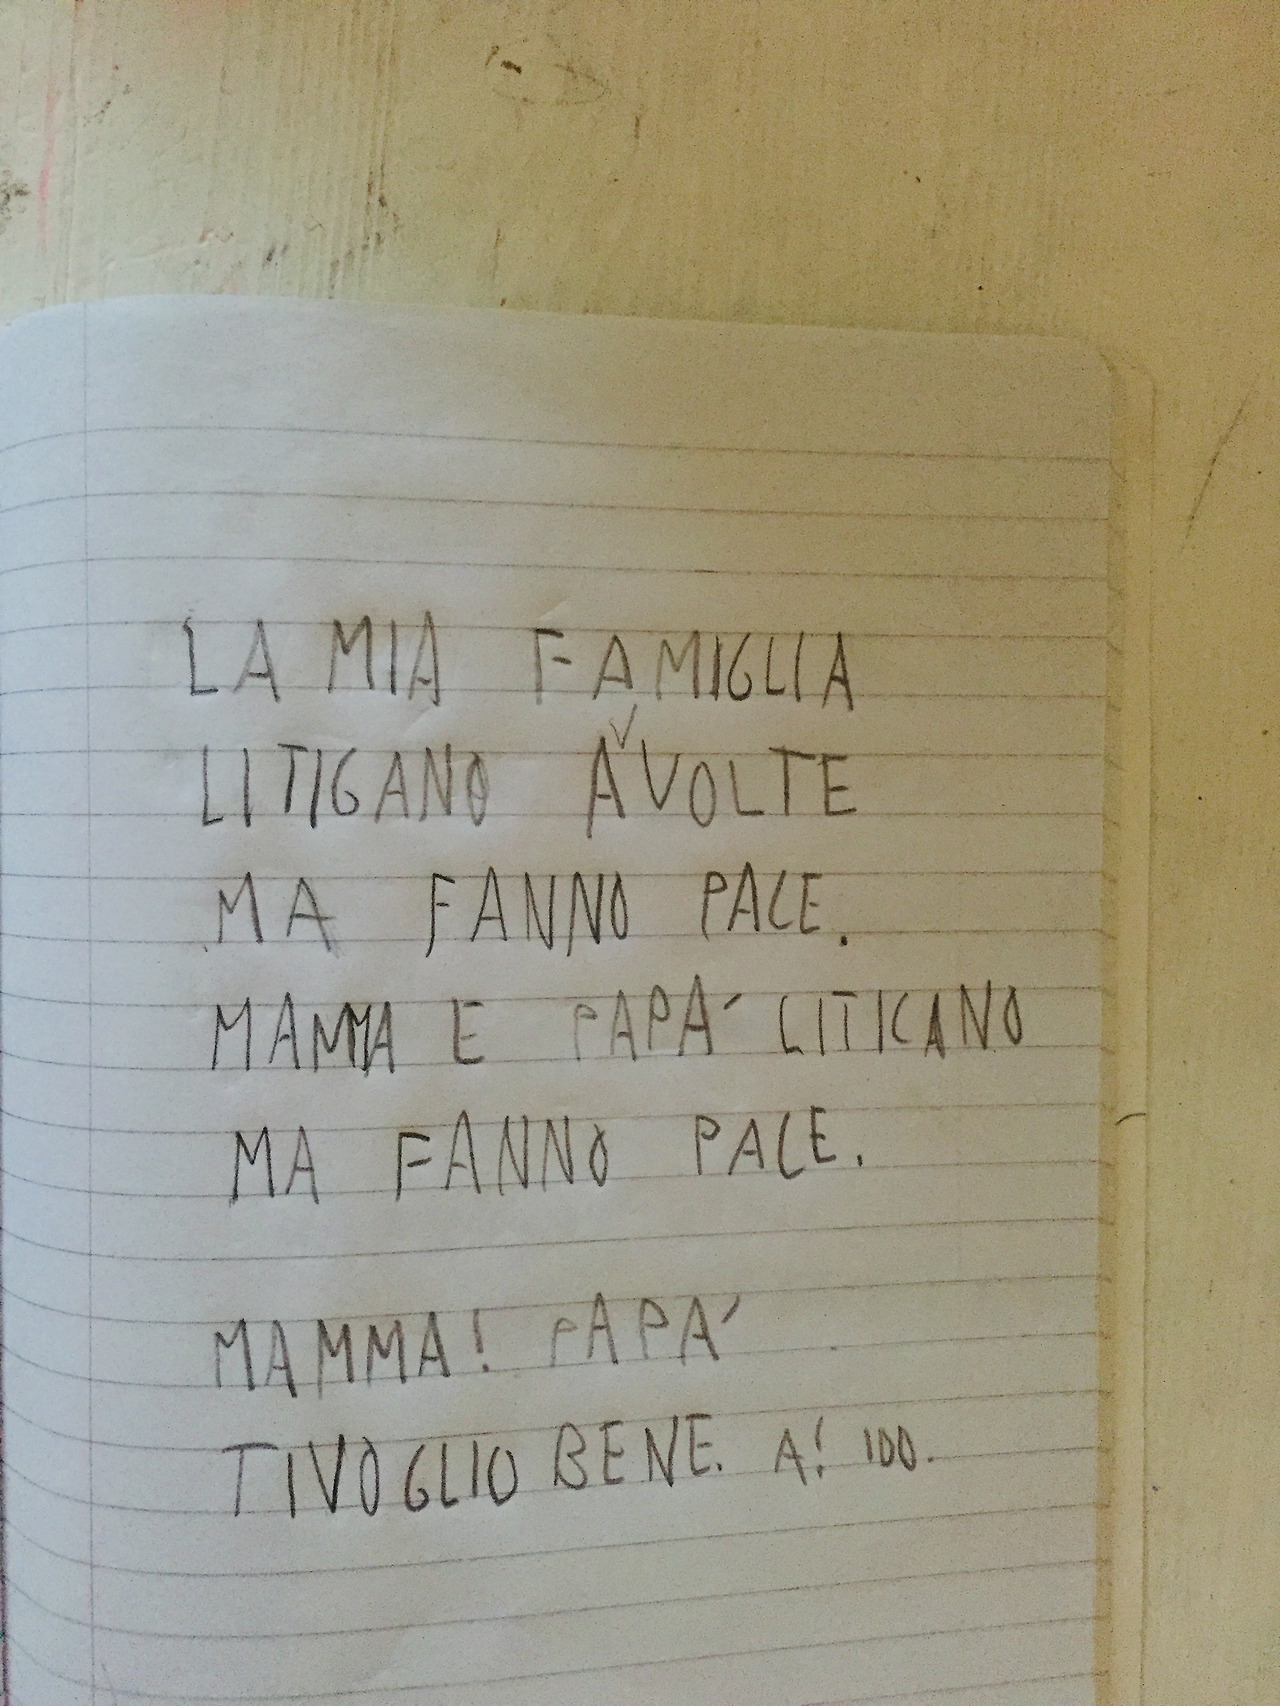 LA MIA FAMIGLIA
LITIGANO A VOLTE
MA FANNO PACE.
MAMMA E PAPA' LITICANO
MA FANNO PACE.
MAMMA! PAPA'
TIVOGLIO BENE. A! 100.